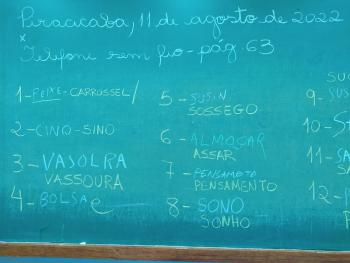 Piracicaba, 11 de agosto de 2022
x
Telefone sem fio - pág. 63
1 - FEIXE - CARROSSEL/
2 - CINO - SINO
3 - VASOLRA
VASSOURA
4 - BOLSA e
5 - SUSIN
SOSSEGO
6 - ALMOSAR
ASSAR
7 - PENSAMETO
PENSAMENTO
8 - SONO
SONHO
9 -
10 -
11 -
12 -